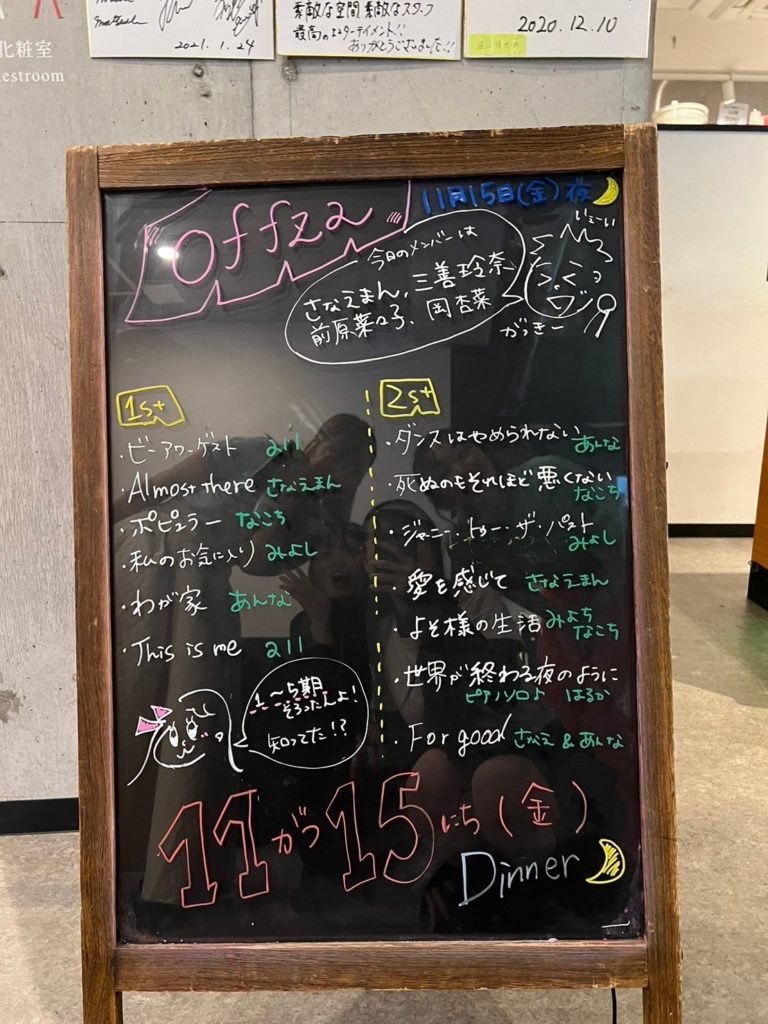 2021.1.24
素敵な空間 素敵なスタッフ
最高のエンターテイメント!!
ありがとうございました!!
2020.12.10
化粧室
estroom
offza
11月15日(金)夜
いぇーい
今日のメンバーは
さなえまん、三善玲奈
前原菜々子、岡杏菜
がっきー
1st
・ビーアワーゲスト all
・Almost there さなえまん
・ポピュラー なこち
・私のお気に入り みよし
・わが家 あんな
・This is me all
1〜5期
そろったんよ!
知ってた!?
2st
・ダンスはやめられない あんな
・死ぬのもそれほど悪くない
なこち
・ジャーニー・トゥー・ザ・パスト
みよし
・愛を感じて さなえまん
・よそ様の生活 みよち
なこち
・世界が終わる夜のように
ピアノソロ♪ はるか
・For good さなえ & あんな
11がつ15にち(金)
Dinner